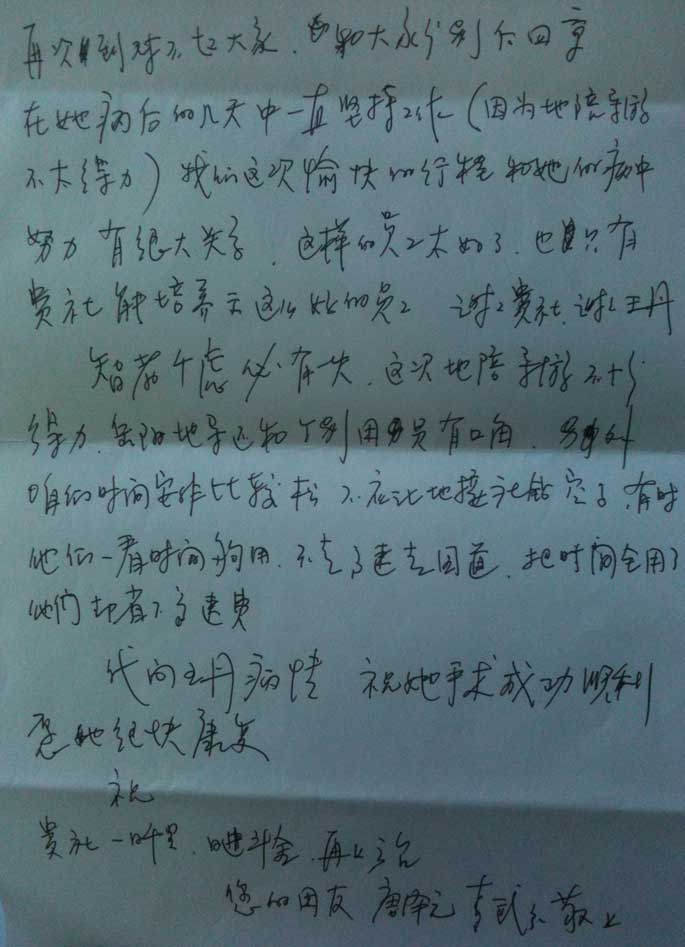 再次感到对不起大家，和大家分别后四章
在她病后的几天中一直坚持工作（因为地陪导游
不太得力）我们这次愉快的行程和她的病中
努力有很大关系，这样的员工太好了，也只有
贵社能培养出这么好的员工 谢谢贵社，谢谢王丹
智者千虑必有一失，这次地陪导游不十分
得力，岳阳地导还和个别团员有口角，另外
咱们时间安排比较松，不应让地接社钻空了，有时
他们一看时间够用，不走高速走国道，把时间全用了
他们却省了高速费
代问王丹病情 祝她手术成功顺利
愿她很快康复
祝
贵社一日千里，日进斗金，再上
您的团友 唐 敬上